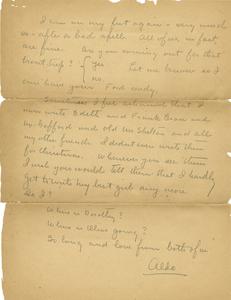 I am on my feet again - very much
so - after a bad spell. All of us in fact
are fine. Are you coming out for that
trout trip? { Yes Let me know so I
no.
can have your Ford ready.
Sometimes I feel ashamed that I
never write Edith and Frank Bean and
and old and all
my other friends. I didn't even write them
for Christmas. Whenever you see them
I wish you would tell them that I hardly
get to write my best girl any more.
Do I?
Where is Dorothy?
Where is going?
So long and love from both of us
Aldo